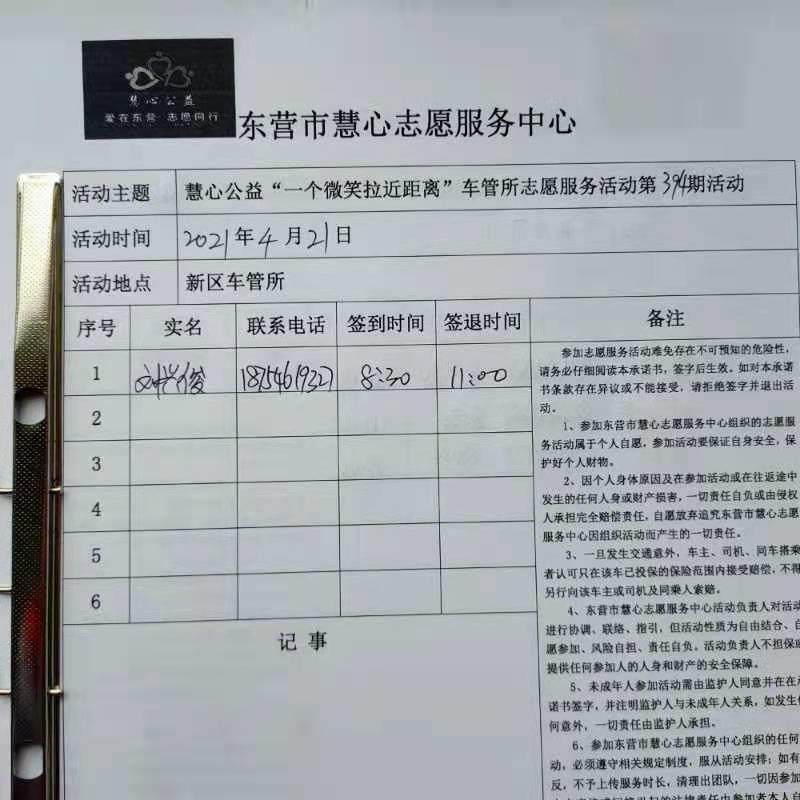 慧心公益
爱在东营 志愿同行
东营市慧心志愿服务中心
活动主题 慧心公益“一个微笑拉近距离”车管所志愿服务活动第394期活动
活动时间 2021年4月21日
活动地点 新区车管所
序号 实名 联系电话 签到时间 签退时间 备注
1 刘兴俊 18754619327 8:30 11:00
2
3
4
5
6
记事
参加志愿服务活动难免存在不可预知的危险性,
请务必仔细阅读本承诺书,签字后生效。如对本承诺
书条款存在异议或不能接受,请拒绝签字并退出活
动。
1、参加东营市慧心志愿服务中心组织的志愿服
务活动属于个人自愿,参加活动要保证自身安全,保
护好个人财物。
2、因个人身体原因及在参加活动或在往返途中
发生的任何人身或财产损害,一切责任自负或由侵权
人承担完全赔偿责任,自愿放弃追究东营市慧心志愿
服务中心因组织活动而产生的一切责任。
3、一旦发生交通意外,车主、司机、同车搭乘
者认可只在该车已投保的保险范围内接受赔偿,不得
另行向该车主或司机及同乘人索赔。
4、东营市慧心志愿服务中心活动负责人对活动
进行协调、联络、指引,但活动性质为自由结合、自
愿参加、风险自担、责任自负。活动负责人不担保或
提供任何参加人的人身和财产的安全保障。
5、未成年人参加活动需由监护人同意并在在承
诺书签字,并注明监护人与未成年人关系,如发生任
何意外,一切责任由监护人承担。
6、参加东营市慧心志愿服务中心组织的任何
动,必须遵守相关规定制度,服从活动安排;如有
反,不予上传服务时长,清理出团队,一切因参加